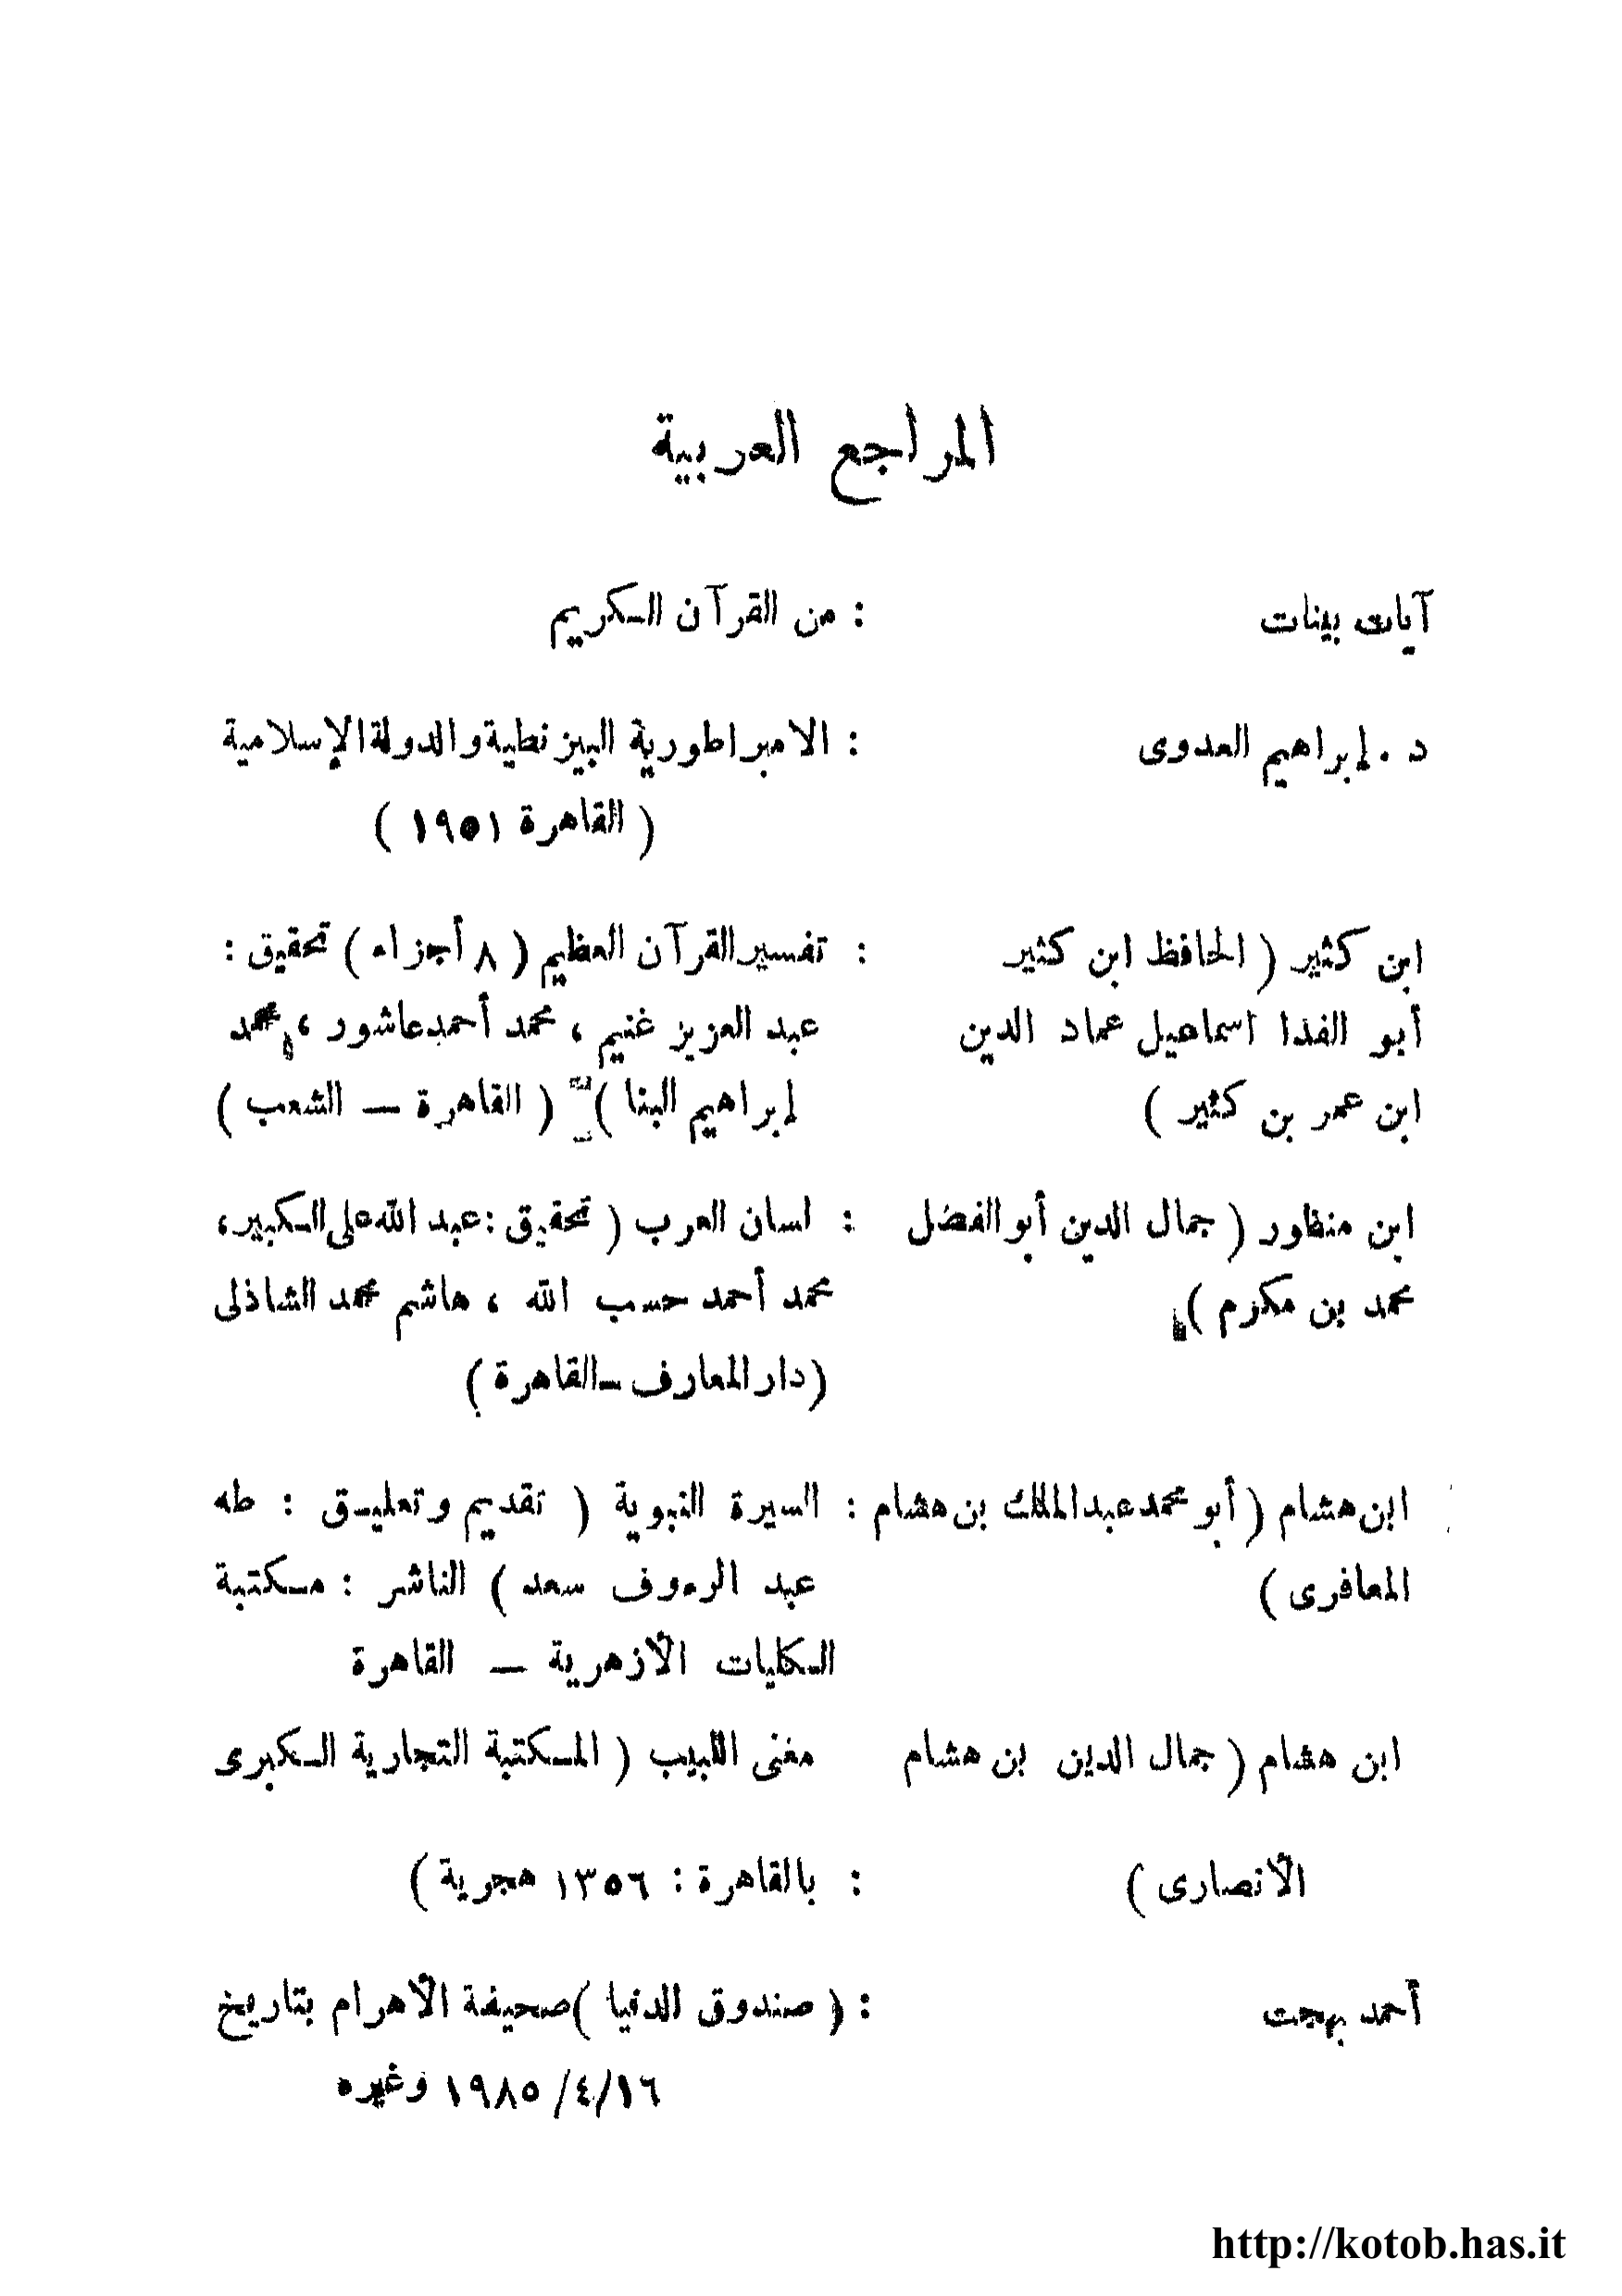 المراجع العربية
آيات بينات : من القرآن الكريم
د . إبراهيم العدوى : الامبراطورية البيزنطية والدولة الإسلامية
( القاهرة ١٩٥١ )
ابن كثير ( الحافظ ابن كثير : تفسير القرآن العظيم ( ٨ أجزاء ) تحقيق :
أبو الفدا اسماعيل عماد الدين عبد العزيز غنيم ، محمد أحمد عاشور ، محمد
ابن عمر بن كثير ) إبراهيم البنا ) ( القاهرة – الشعب )
ابن منظور ( جمال الدين أبو الفضل : لسان العرب ( تحقيق : عبد الله على الكبير ،
محمد بن مكرم ) محمد أحمد حسب الله ، هاشم محمد الشاذلى
( دار المعارف – القاهرة )
ابن هشام ( أبو محمد عبد الملك بن هشام : السيرة النبوية ( تقديم وتعليق : طه
المعافرى ) عبد الرءوف سعد ) الناشر : مكتبة
الكليات الأزهرية – القاهرة
ابن هشام ( جمال الدين بن هشام مغنى اللبيب ( المكتبة التجارية الكبرى
الأنصارى ) : بالقاهرة : ١٣٥٦ هجرية )
أحمد بهجت : ( صندوق الدنيا ) صحيفة الأهرام بتاريخ
١٦/٤/١٩٨٥ وغيره
http://kotob.has.it